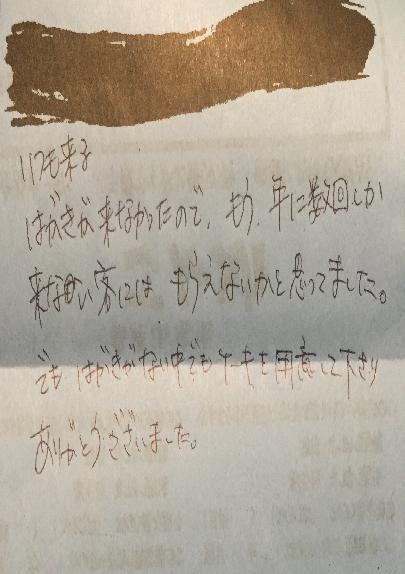 いつも来る
はがきが来なかったので、もう、年に数回しか
来ない客には もらえないかと思ってました。
でも はがきがない中でもケーキを用意して下さり
ありがとうございました。